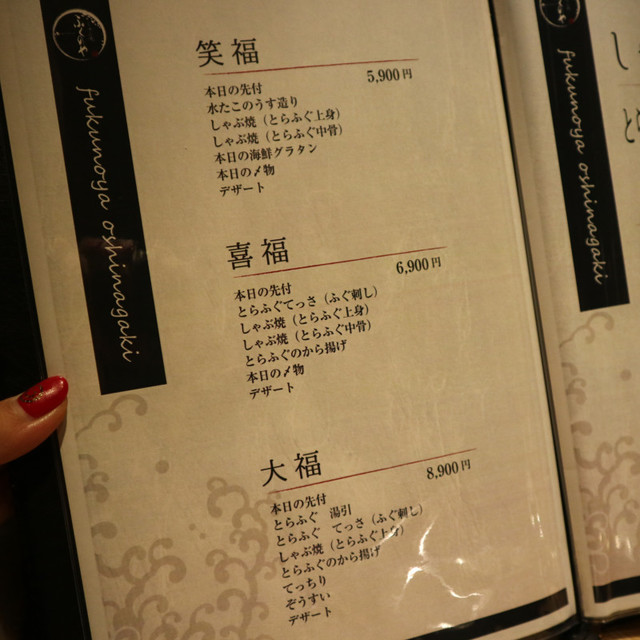 ふくのや
fukunoya oshinagaki
笑福
5,900円
本日の先付
水たこのうす造り
しゃぶ焼（とらふぐ上身）
しゃぶ焼（とらふぐ中骨）
本日の海鮮グラタン
本日の〆物
デザート
喜福
6,900円
本日の先付
とらふぐてっさ（ふぐ刺し）
しゃぶ焼（とらふぐ上身）
しゃぶ焼（とらふぐ中骨）
とらふぐのから揚げ
本日の〆物
デザート
大福
8,900円
本日の先付
とらふぐ　湯引
とらふぐ　てっさ（ふぐ刺し）
しゃぶ焼（とらふぐ上身）
とらふぐのから揚げ
てっちり
ぞうすい
デザート
fukunoya oshinagaki
し
と